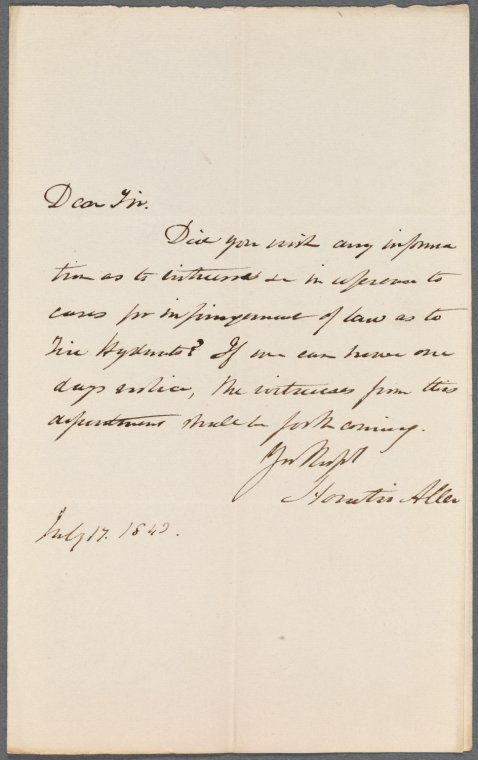 Dear Sir.
Did you wish any informa
tion as to witnesses &c in reference to
cases for infringement of law as to
Fire Hydrants? If we can have one
days notice, the witnesses from this
department shall be forthcoming.
Yrs Respt
Horatio Allen
July 17. 1843.